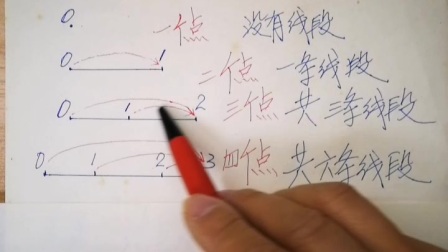 0 一个点 没有线段
0 1 二个点 一条线段
0 1 2 三个点 共三条线段
0 1 2 3 四个点 共六条线段